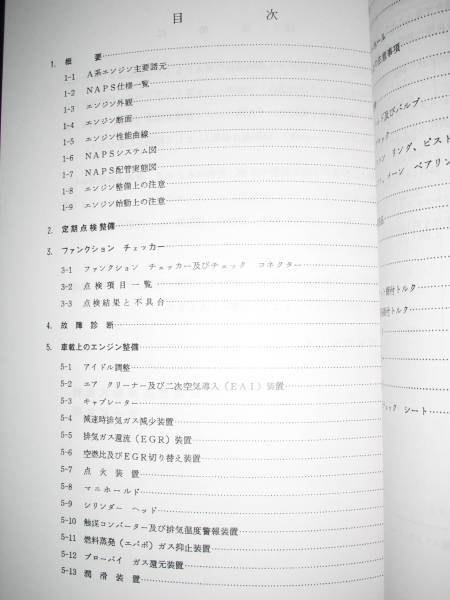 目 次
1. 概 要
1-1 A系エンジン主要諸元
1-2 NAPS仕様一覧
1-3 エンジン外観
1-4 エンジン断面
1-5 エンジン性能曲線
1-6 NAPSシステム図
1-7 NAPS配管実態図
1-8 エンジン整備上の注意
1-9 エンジン始動上の注意
2. 定期点検整備
3. ファンクション チェッカー
3-1 ファンクション チェッカー及びチェック コネクター
3-2 点検項目一覧
3-3 点検結果と不具合
4. 故障診断
5. 車載上のエンジン整備
5-1 アイドル調整
5-2 エア クリーナー及び二次空気導入(EAI)装置
5-3 キャブレーター
5-4 減速時排気ガス減少装置
5-5 排気ガス還流(EGR)装置
5-6 空燃比及びEGR切り替え装置
5-7 点火装置
5-8 マニホールド
5-9 シリンダー ヘッド
5-10 触媒コンバーター及び排気温度警報装置
5-11 燃料蒸発(エバポ)ガス抑止装置
5-12 ブローバイ ガス還元装置
5-13 潤滑装置
ール
の注意事項
ド及びバルブ
ック
ン リング、ピスト
、メーン ベアリン
付トルク
付トルク
ック シート